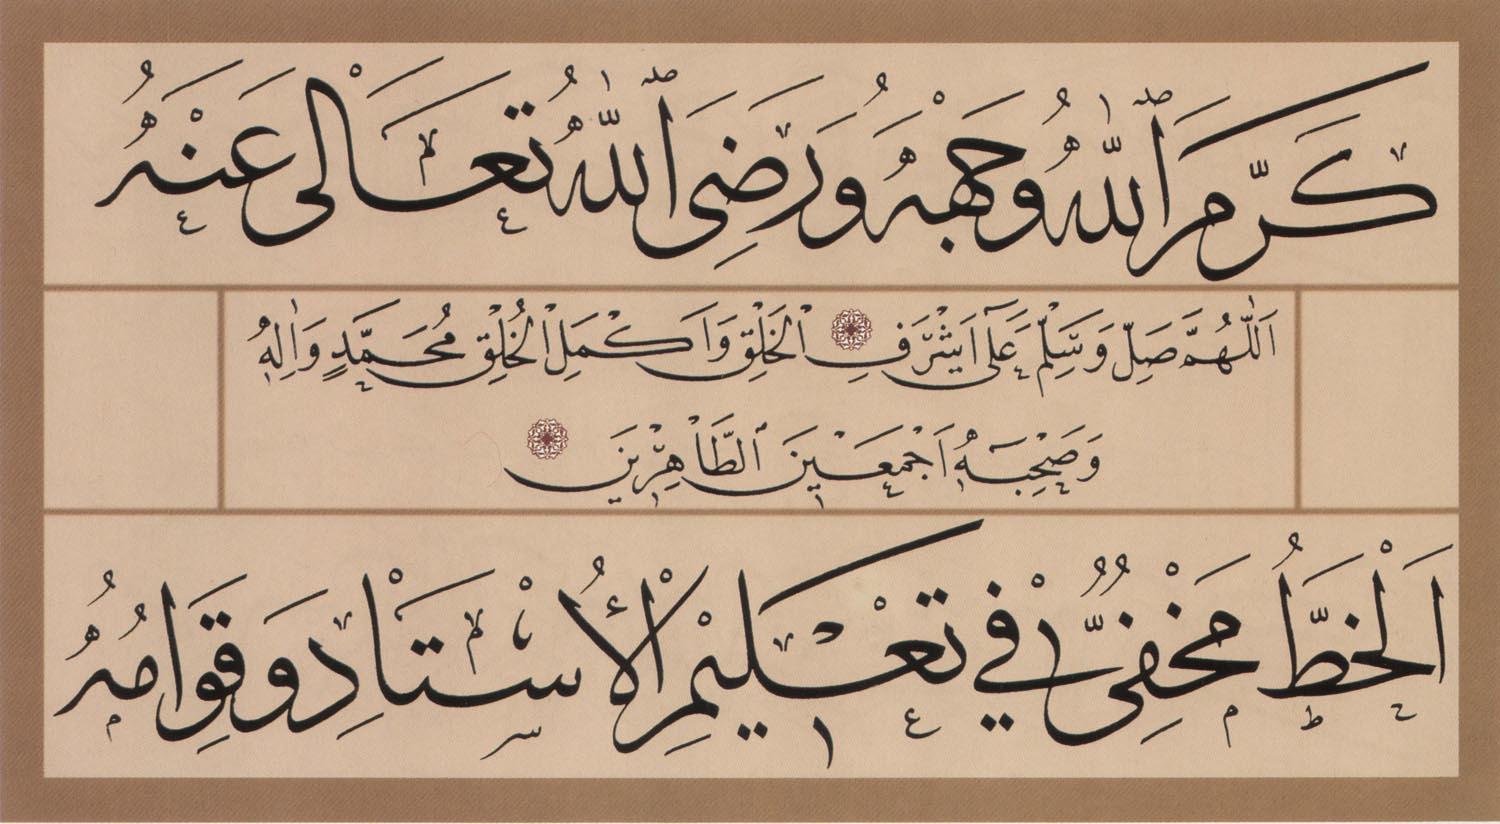 كَرَّمَ اللّٰهُ وَجْهَهُ وَرَضِىَ اللّٰهُ تَعَالٰى عَنْهُ
اَللّٰهُمَّ صَلِّ وَسَلِّمْ عَلٰى اَشْرَفِ الْخَلْقِ وَاَكْمَلِ الْخُلُقِ مُحَمَّدٍ وَاٰلِهِ
وَصَحْبِهِ اَجْمَعِينَ الطَّاهِرِينَ
اَلْخَطُّ مَخْفِىٌّ فِي تَعْلِيمِ الْأُسْتَاذِ وَقِوَامُهُ